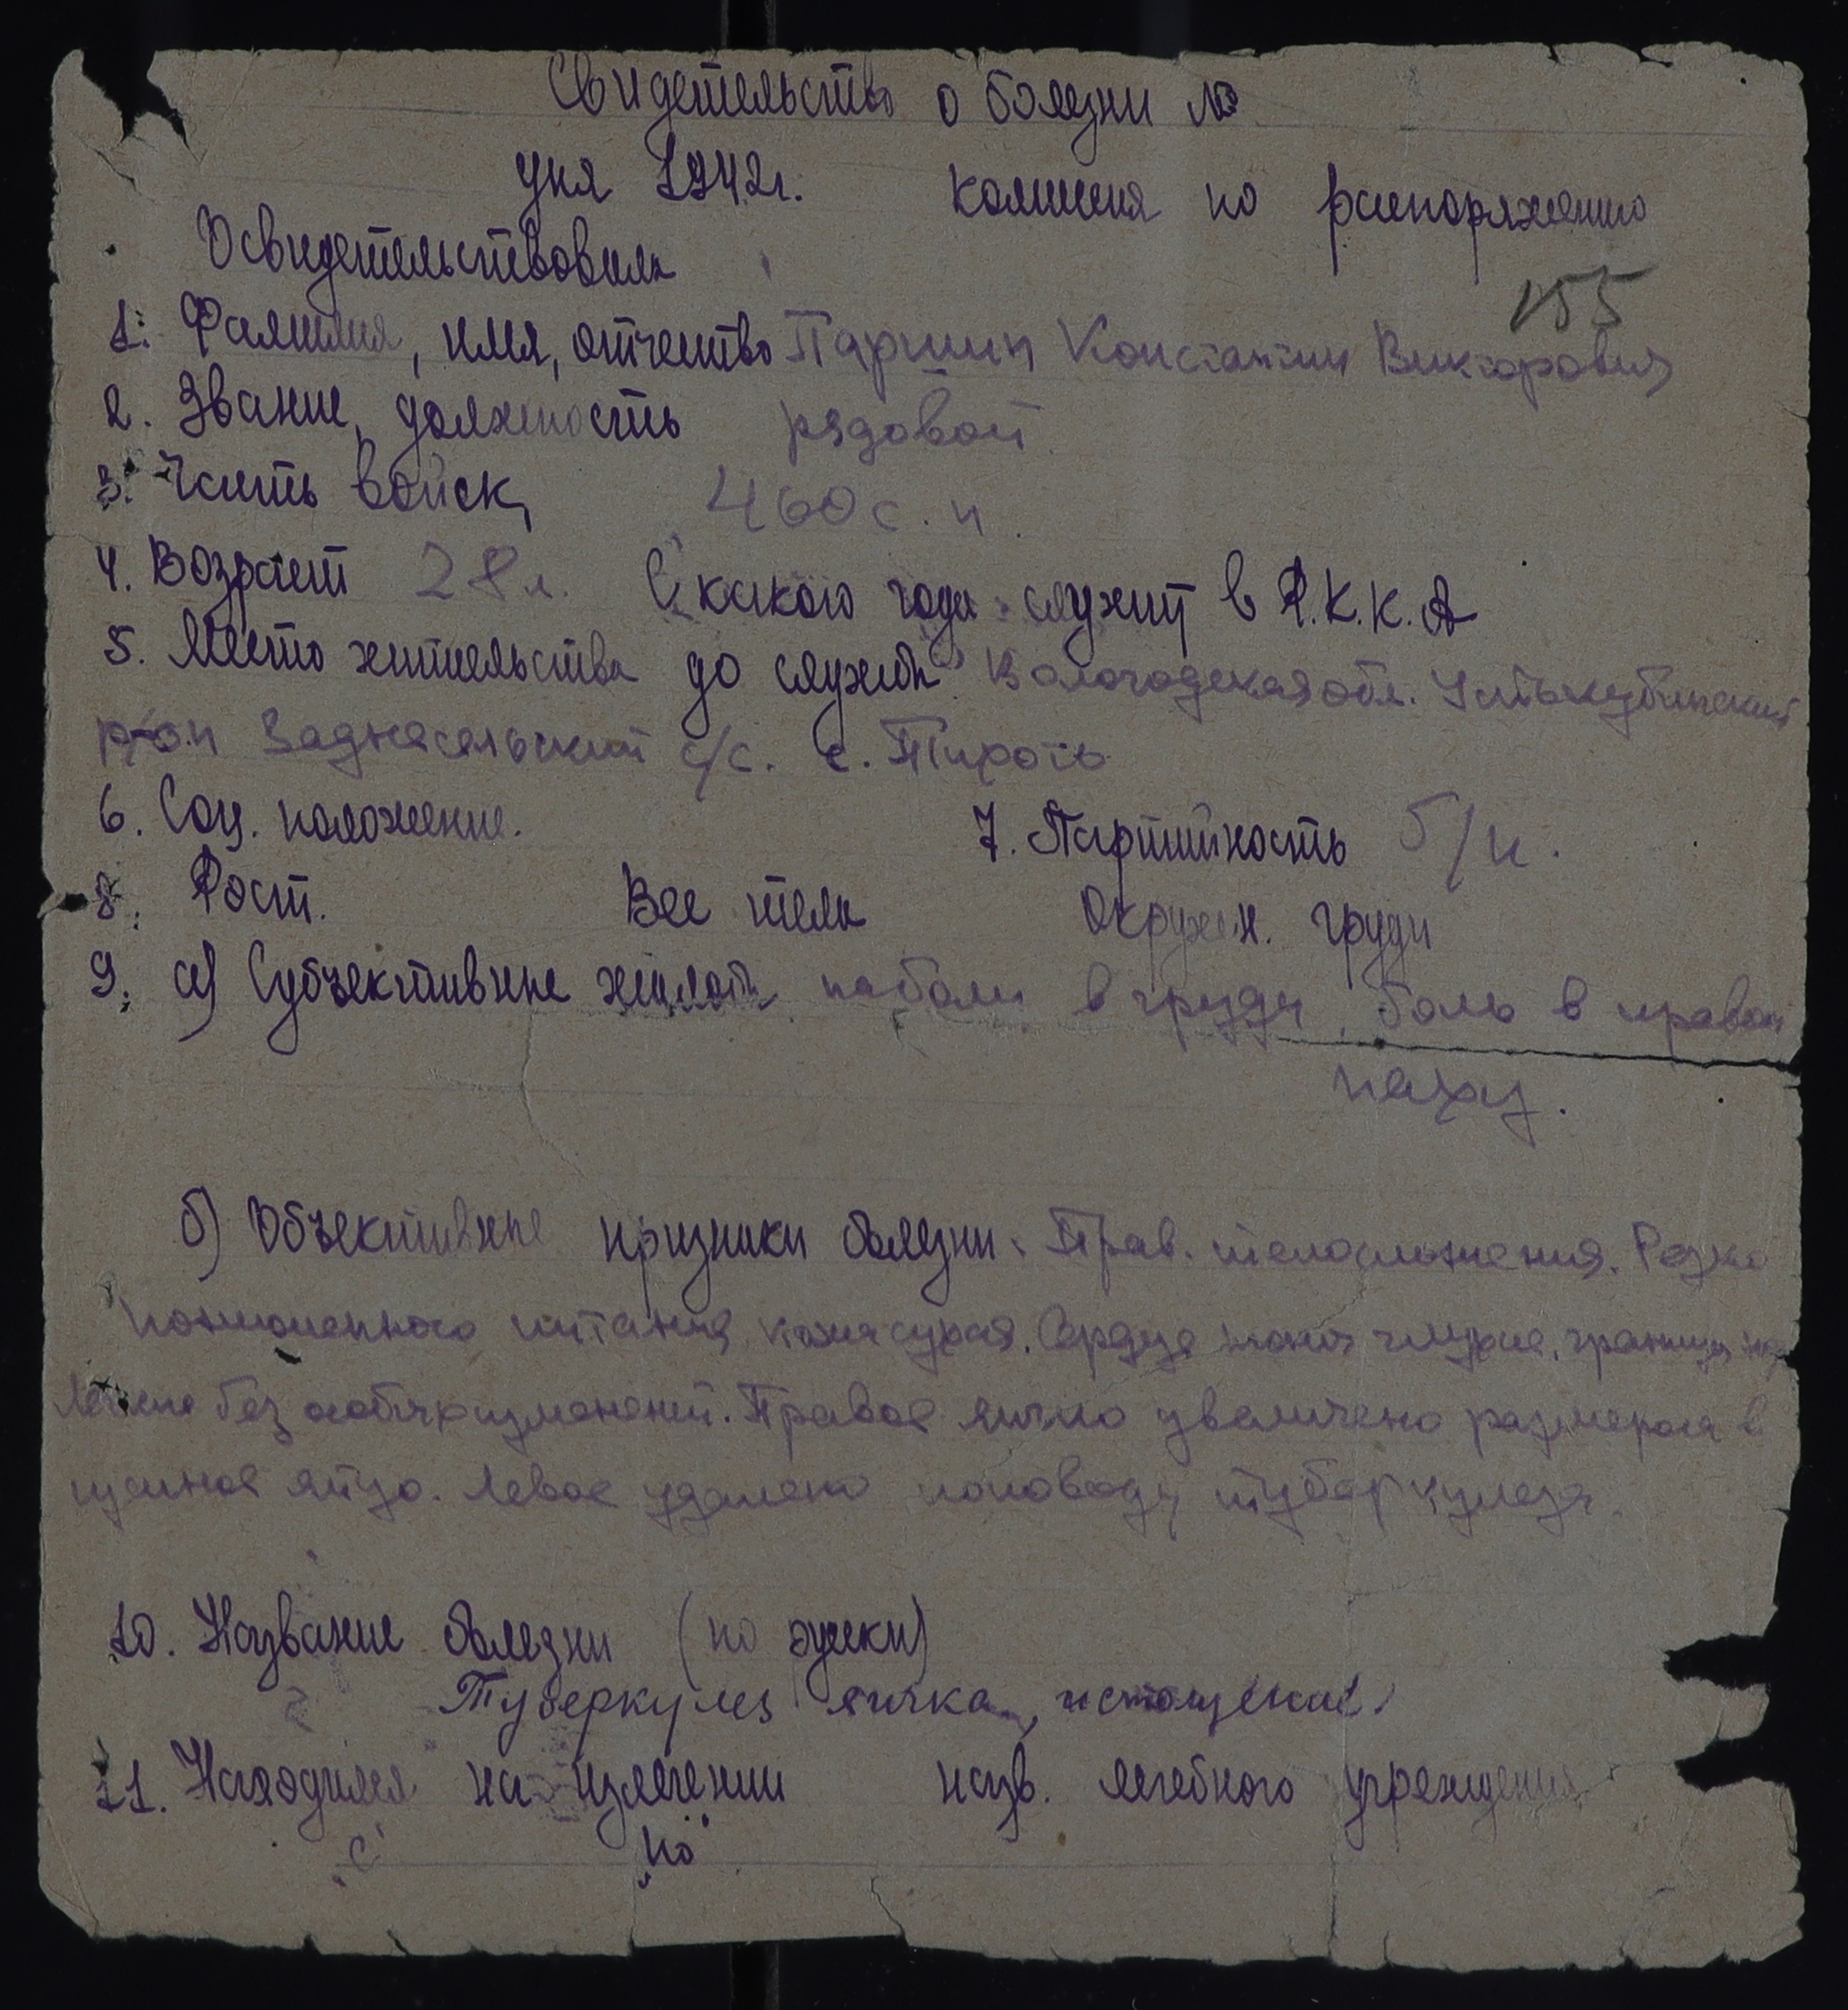 Свидетельство о болезни №
дня 1942г. комиссия по распоряжению
Освидетельствовала
155
1. Фамилия, имя, отчество Паршин Константин Викторович
2. Звание, должность рядовой
3. Часть войск, 460 с.п.
4. Возраст 28 л. С какого года служит в Р.К.К.А
5. Место жительства до службы Вологодская обл. Устькубинский
р-он Заднесельский с/с. с.
6. Соц. положение. 7. Партийность б/п.
8. Рост. Вес тела Окружн. груди
9. а) Субъективные жалобы на боли в груди, боль в правом
паху.
б) Объективные признаки болезни: Прав. телосложения. Резко
пониженного питания, кожа сухая. Сердце тоны глухие, границы
Легкие без особых изменений. Правое яичко увеличено размером в
гусиное яйцо. Левое удалено по поводу туберкулеза.
10. Название болезни (по русски)
Туберкулез яичка, истощение.
11. Находился на излечении назв. лечебного учреждения
"с" "по"